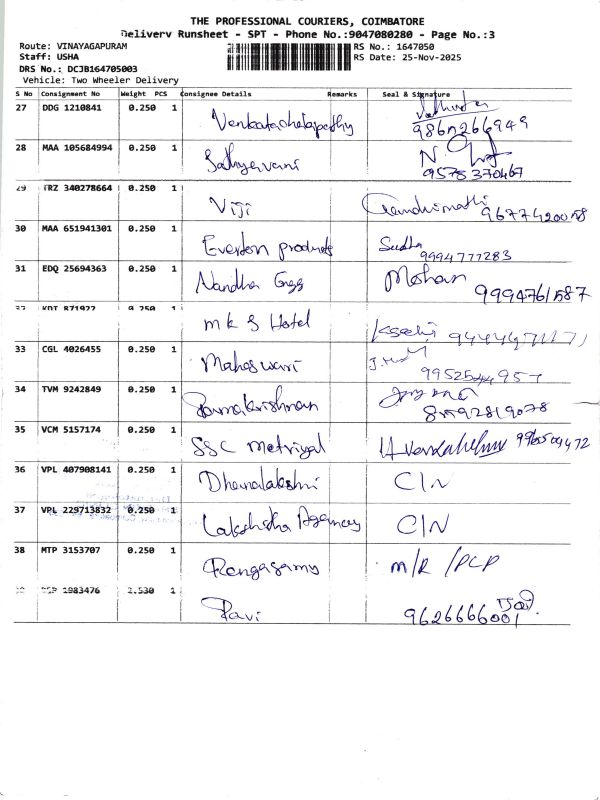 THE PROFESSIONAL COURIERS, COIMBATORE
Delivery Runsheet - SPT - Phone No.:9047080280 - Page No.:3
Route: VINAYAGAPURAM RS No.: 1647050
Staff: USHA RS Date: 25-Nov-2025
DRS No.: DCJB164705003
Vehicle: Two Wheeler Delivery
S No Consignment No Weight PCS Consignee Details Remarks Seal & Signature
27 DDG 1210841 0.250 1 Venkatachalapathy
28 MAA 105684994 0.250 1 Sathyavani 9578370467
29 TRZ 340278664 0.250 1 Viji Gandhimathi 9677420058
30 MAA 651941301 0.250 1 Everton products Sudha 9994777283
31 EDQ 25694363 0.250 1 Nandha Eggs Mohan 9994761587
0.250 1 M K S Hotel
33 CGL 4026455 0.250 1 Maheswari
34 TVM 9242849 0.250 1 Ramakrishnan
35 VCM 5157174 0.250 1 SSC Metriyal
36 VPL 407908141 0.250 1 Dhanalakshmi C/N
37 VPL 229713832 0.250 1 Lakshitha Agency C/N
38 MTP 3153707 0.250 1 Rengasamy M/R /PCP
1983476 1 Ravi 9626666001